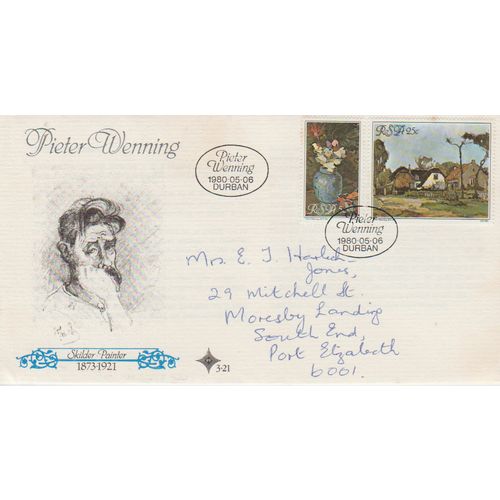 Pieter Wenning
Pieter
Wenning
1980·05·06
DURBAN
RSA 5c
RSA 25c
Pieter
Wenning
1980·05·06
DURBAN
Mrs. E. J. Harlech-
Jones,
29 Mitchell St.
Moresby Landing
South End,
Port Elizabeth
6001.
Skilder Painter
1873-1921
3·21